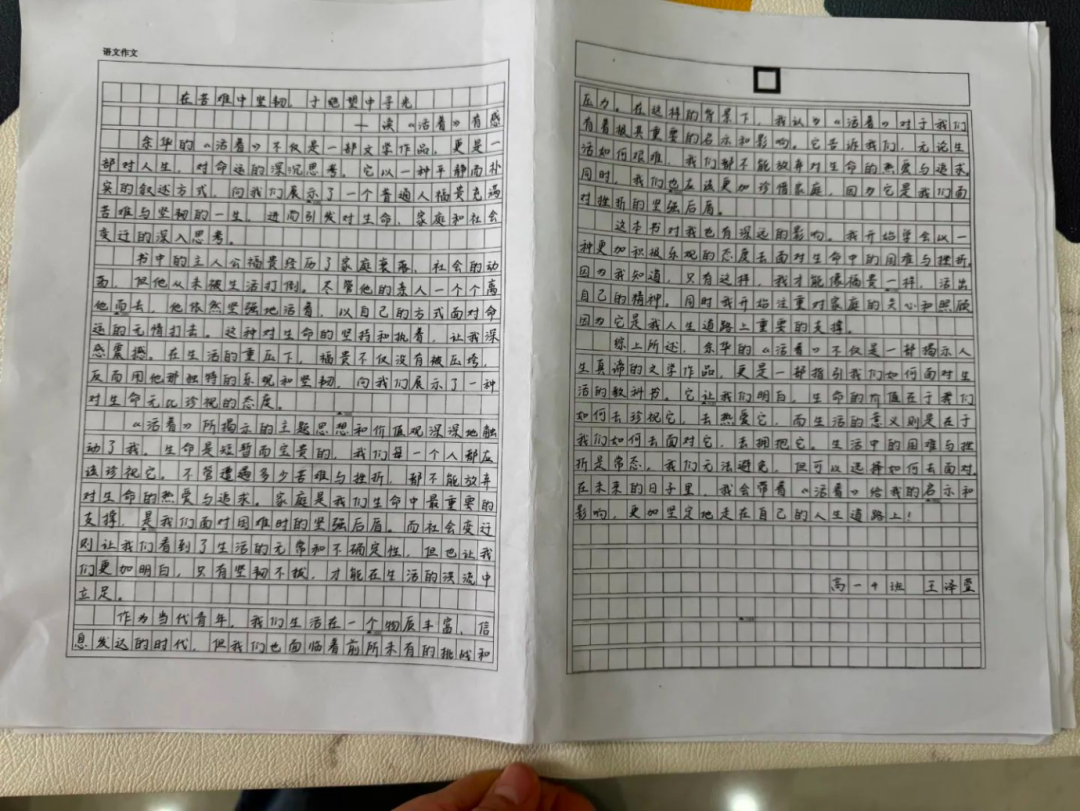 语文作文
在苦难中坚韧，于绝望中寻光
——读《活着》有感
余华的《活着》不仅是一部文学作品，更是一
部对人生，对命运的深沉思考。它以一种平静而朴
实的叙述方式，向我们展示了一个普通人福贵充满
苦难与坚韧的一生，进而引发对生命、家庭和社会
变迁的深入思考。
书中的主人公福贵经历了家庭衰落、社会的动
荡，但他从未被生活打倒。尽管他的亲人一个个离
他而去，他依然坚强地活着，以自己的方式面对命
运的无情打击。这种对生命的坚持和执着，让我深
感震撼。在生活的重压下，福贵不仅没有被压垮，
反而用他那独特的乐观和坚韧，向我们展示了一种
对生命无比珍视的态度。
《活着》所揭示的主题思想和价值观深深地触
动了我。生命是短暂而宝贵的，我们每一个人都应
该珍视它，不管遭遇多少苦难与挫折，都不能放弃
对生命的热爱与追求。家庭是我们生命中最重要的
支撑，是我们面对困难时的坚强后盾。而社会变迁
则让我们看到了生活的无常和不确定性，但也让我
们更加明白，只有坚韧不拔，才能在生活的洪流中
立足。
作为当代青年，我们生活在一个物质丰富、信
息发达的时代，但我们也面临着前所未有的挑战和
压力。在这样的背景下，我认为《活着》对于我们
有着极其重要的启示和影响。它告诉我们，无论生
活如何艰难，我们都不能放弃对生命的热爱与追求。
同时，我们也应该更加珍惜家庭，因为它是我们面
对挫折的坚强后盾。
这本书对我也有深远的影响。我开始学会以一
种更加积极乐观的态度去面对生命中的困难与挫折，
因为我知道，只有这样，我才能像福贵一样，活出
自己的精神。同时我开始注重对家庭的关心和照顾，
因为它是我人生道路上重要的支撑。
综上所述，余华的《活着》不仅是一部揭示人
生真谛的文学作品，更是一部指引我们如何面对生
活的教科书。它让我们明白，生命的价值在于我们
如何去珍视它，去热爱它，而生活的意义则是在于
我们如何去面对它，去拥抱它。生活中的困难与挫
折是常态，我们无法避免，但可以选择如何去面对。
在未来的日子里，我会带着《活着》给我的启示和
影响，更加坚定地走在自己的人生道路上！
高一4班 王泽莹